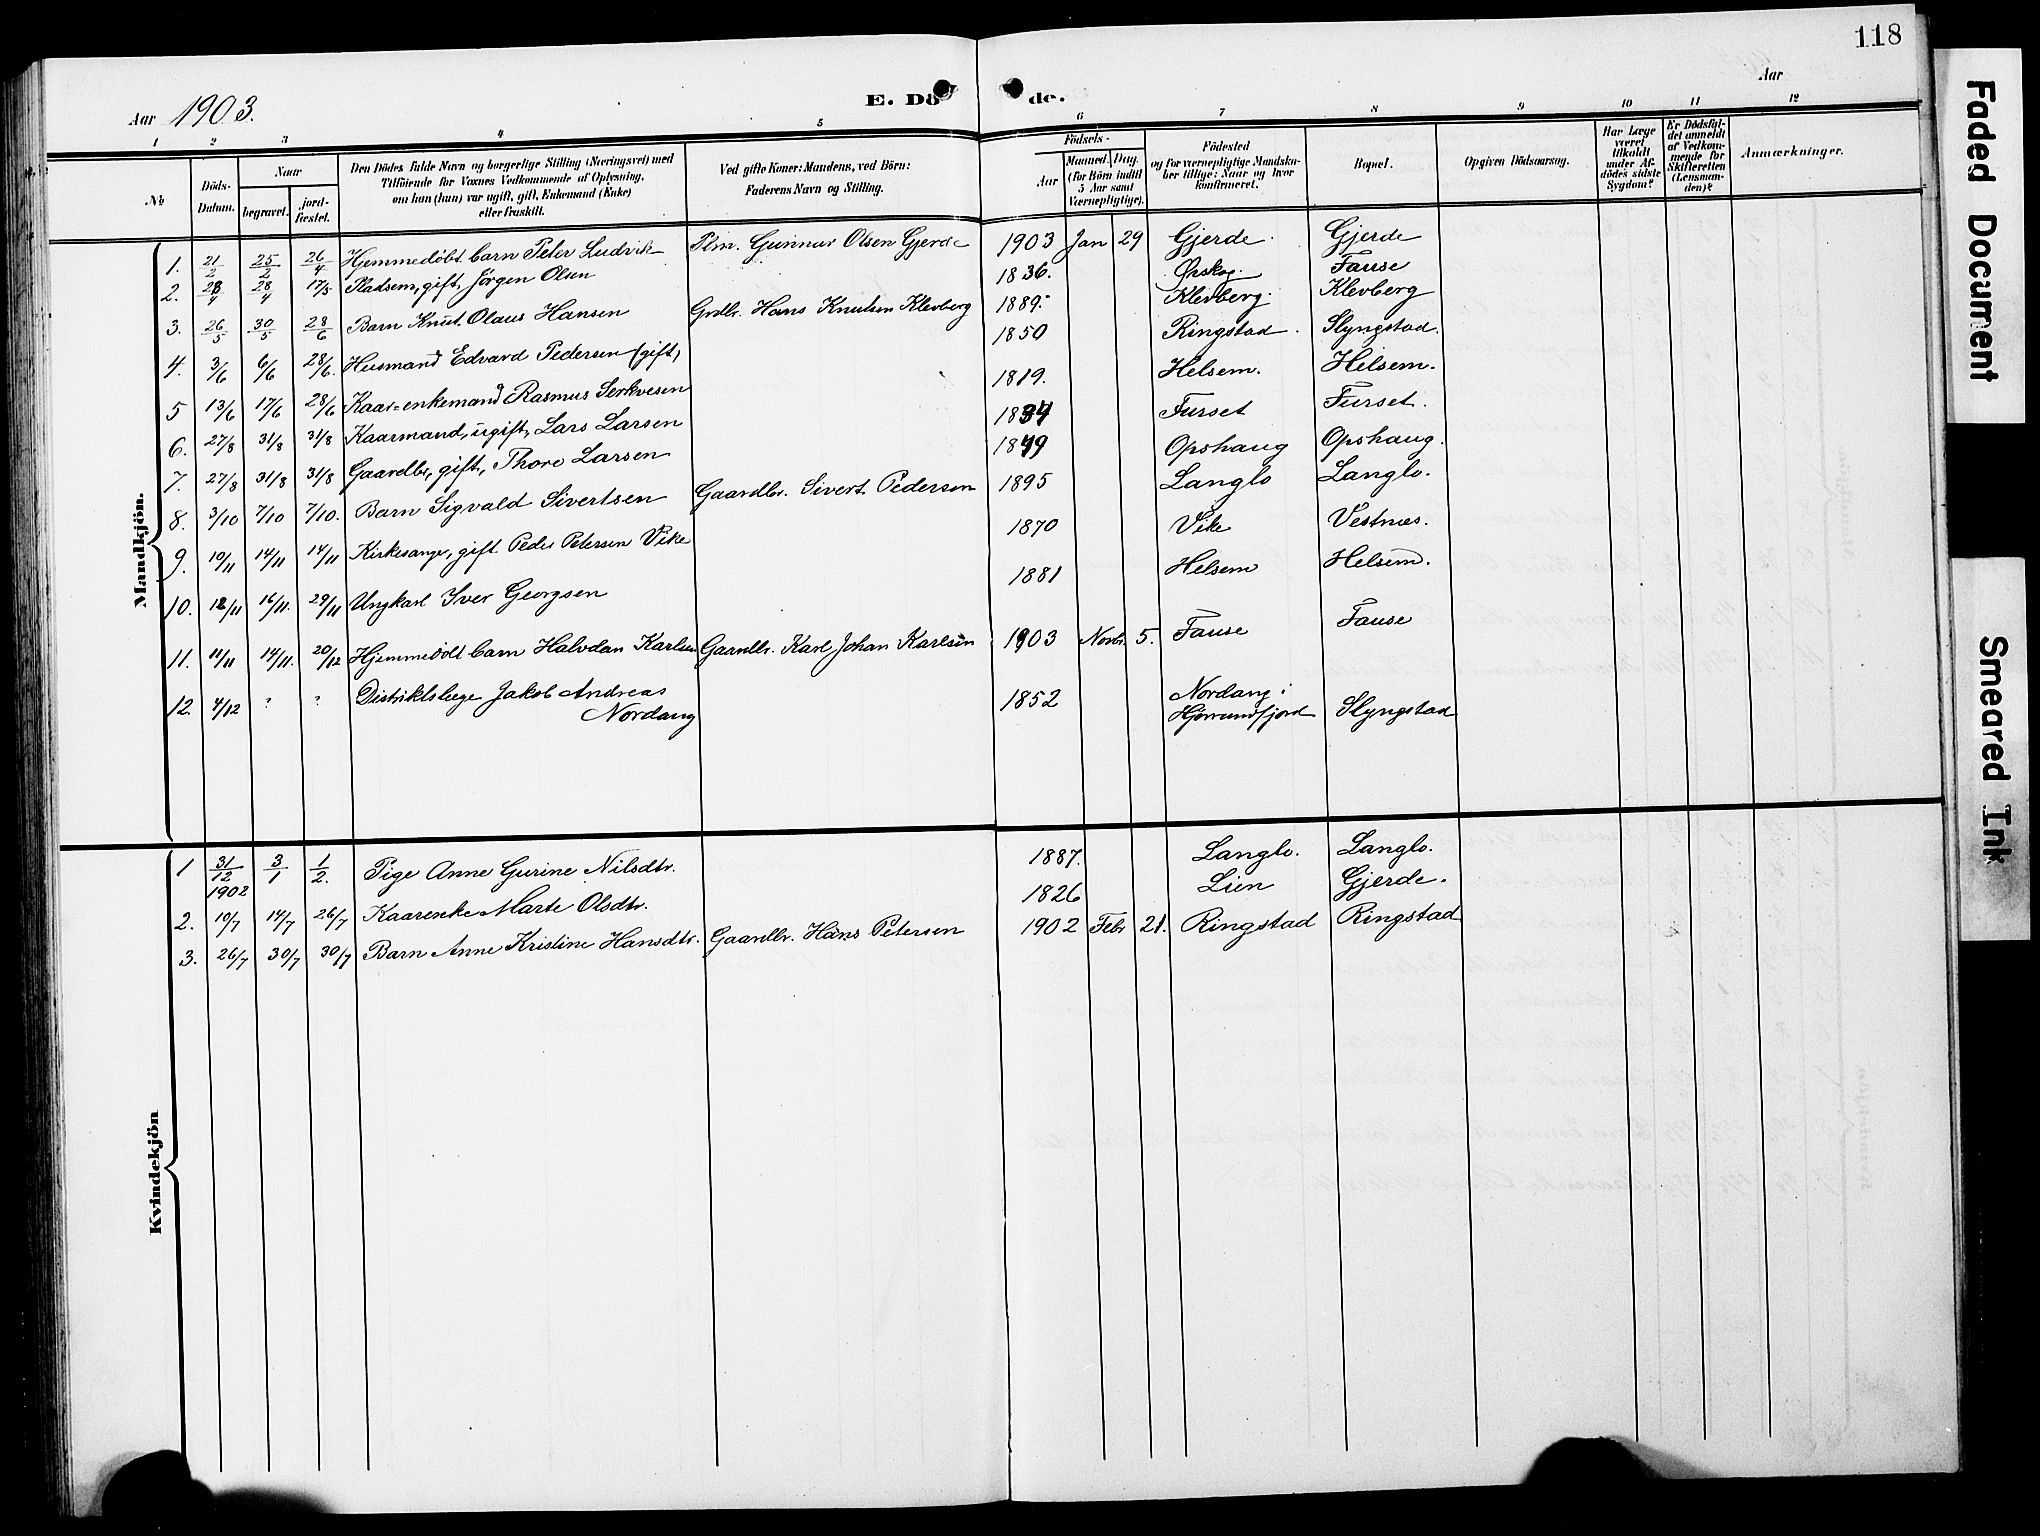 118
Aar 1903.
E. Dö de.
Aar
1 2 3 4 5 6 7 8 9 10 11 12
No
Döds-Datum.
Naar
begravet.
jord-fæstet.
Den Dödes fulde Navn og borgerlige Stilling (Næringsvei) med
Tilföiende for Voxnes Vedkommende af Oplysning,
om han (hun) var ugift, gift, Enkemand (Enke)
eller fraskilt.
Ved gifte Koner: Mandens, ved Börn:
Faderens Navn og Stilling.
Födsels-
Aar
Maaned. Dag.
(for Börn indtil
5 Aar samt
Værnepligtige).
Födested
og for værnepligtige Mandska-
ber tillige: Naar og hvor
konfirmeret.
Bopæl.
Opgiven Dödsaarsag.
Har Læge
været
tilkaldt
under Af-
dödes sidste
Sygdom?
Er Dödsfal-
det anmeldt
af Vedkom-
mende for
Skifteretten
(Lensman-
den)?
Anmærkninger.
Mandkjön.
1. 21/2 25/2 26/4 Hjemmedöbt barn Peter Ludvik Plm. Gunnar Olsen Gjerde 1903 Jan 29 Gjerde Gjerde
2. 23/4 28/4 17/5 Pladsem, gift, Jörgen Olsen 1836. Ørskog. Fause
3. 26/5 30/5 28/6 Barn Knut Olaus Hansen Grdbr. Hans Knutsen Klevberg 1889. Klevberg. Klevberg
4. 3/6 6/6 28/6. Husmand Edvard Pedersen (gift) 1850 Ringstad. Slyngstad.
5 13/6 17/6 28/6 Kaar-enkemand Rasmus Serkvesen 1819. Helsem. Helsem.
6. 27/8 31/8 31/8 Kaarmand, ugift, Lars Larsen 1834 Furset Furset.
7. 27/8 31/8 31/8 Gaardbr, gift, Thore Larsen 1849 Opshaug Opshaug.
8. 3/10 7/10 7/10. Barn Sigvald Sivertsen Gaardbr. Sivert Pedersen 1895 Langlo Langlo.
9. 10/11 14/11 14/11 Kirkesanger, gift Peder Petersen Vike 1870 Vike Vestnæs.
10. 12/11 16/11. 29/11 Ungkarl Iver Georgsen 1881 Helsem Helsem.
11. 11/11 14/11. 20/12 Hjemmedöbt barn Halvdan Karlsen Gaardbr. Karl Johan Karlsen 1903 Novbr. 5. Fause Fause
12. 4/12 ? ? Distriktslæge Jakob Andreas
Nordang 1852 Nordang i
Hjörrundfjord Slyngstad
Kvindekjön
1 31/12 1902 3/1 1/2. Pige Anne Gurine Nilsdtr. 1887. Langlo. Langlo.
2. 10/7 14/7 26/7 Kaarenke Marte Olsdtr. 1826 Lien Gjerde.
3. 26/7 30/7 30/7 Barn Anne Kristine Hansdtr. Gaardbr. Hans Petersen 1902 Febr 21. Ringstad Ringstad
Faded Document
Smeared Ink